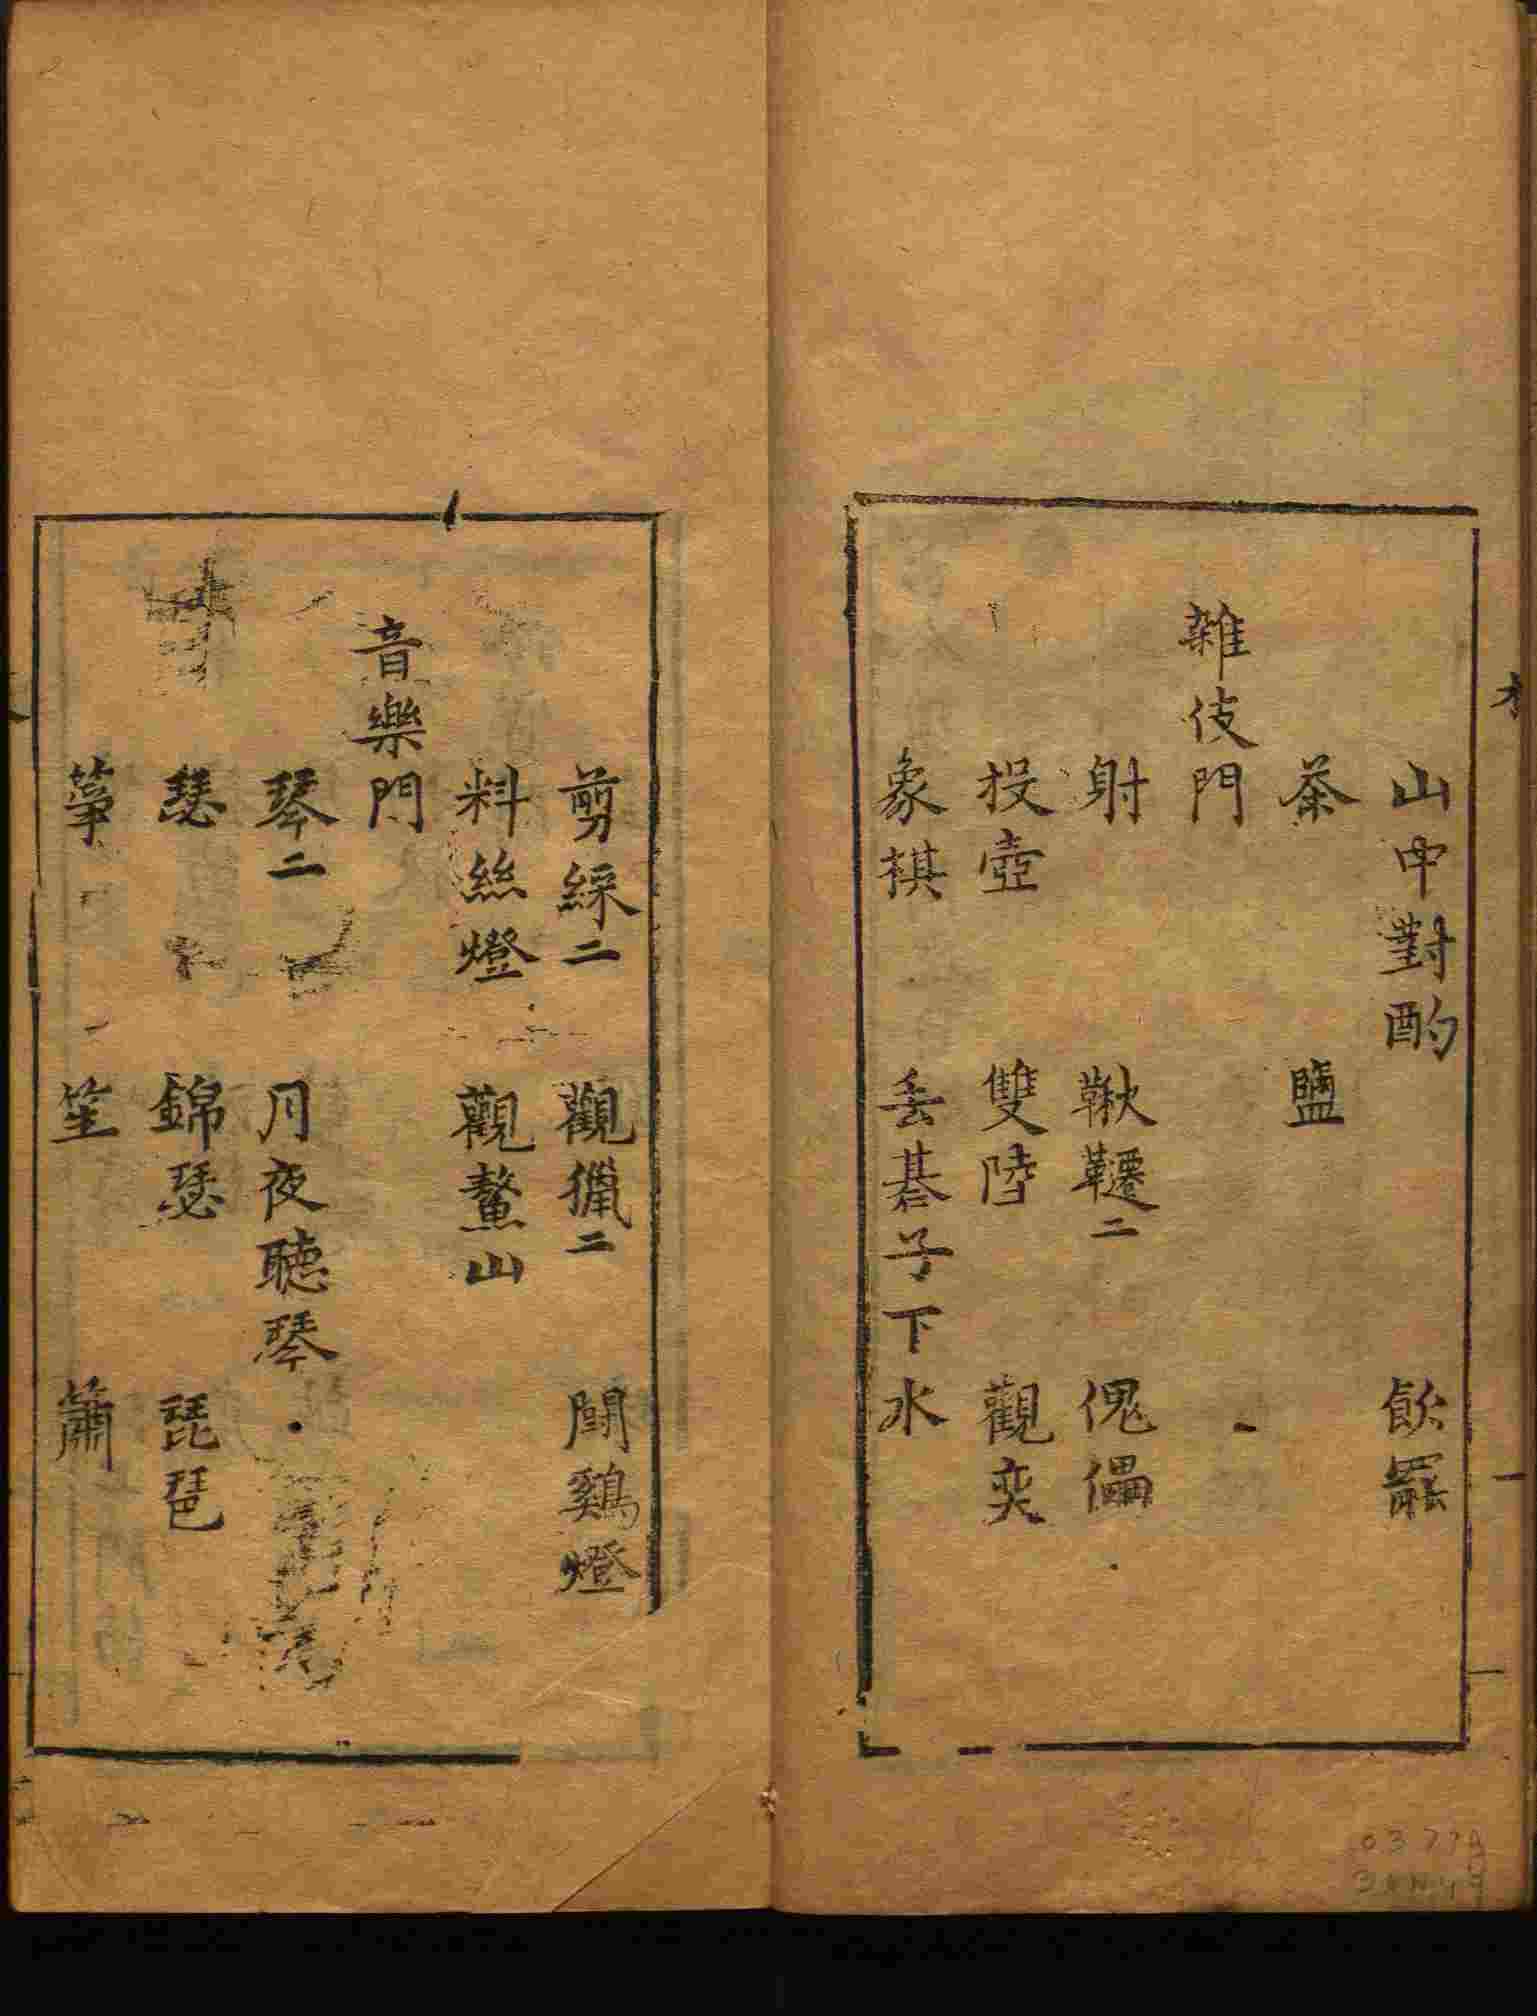 山中對酌　飲罷
茶　鹽
雜伎門
射　鞦韆二　傀儡
投壺　雙陸　觀奕
象棋　丢碁子下水
剪綵二　觀獵二　鬪鷄燈
料絲燈　觀鰲山
音樂門
琴二　月夜聽琴
瑟　錦瑟　琵琶
箏　笙　簫